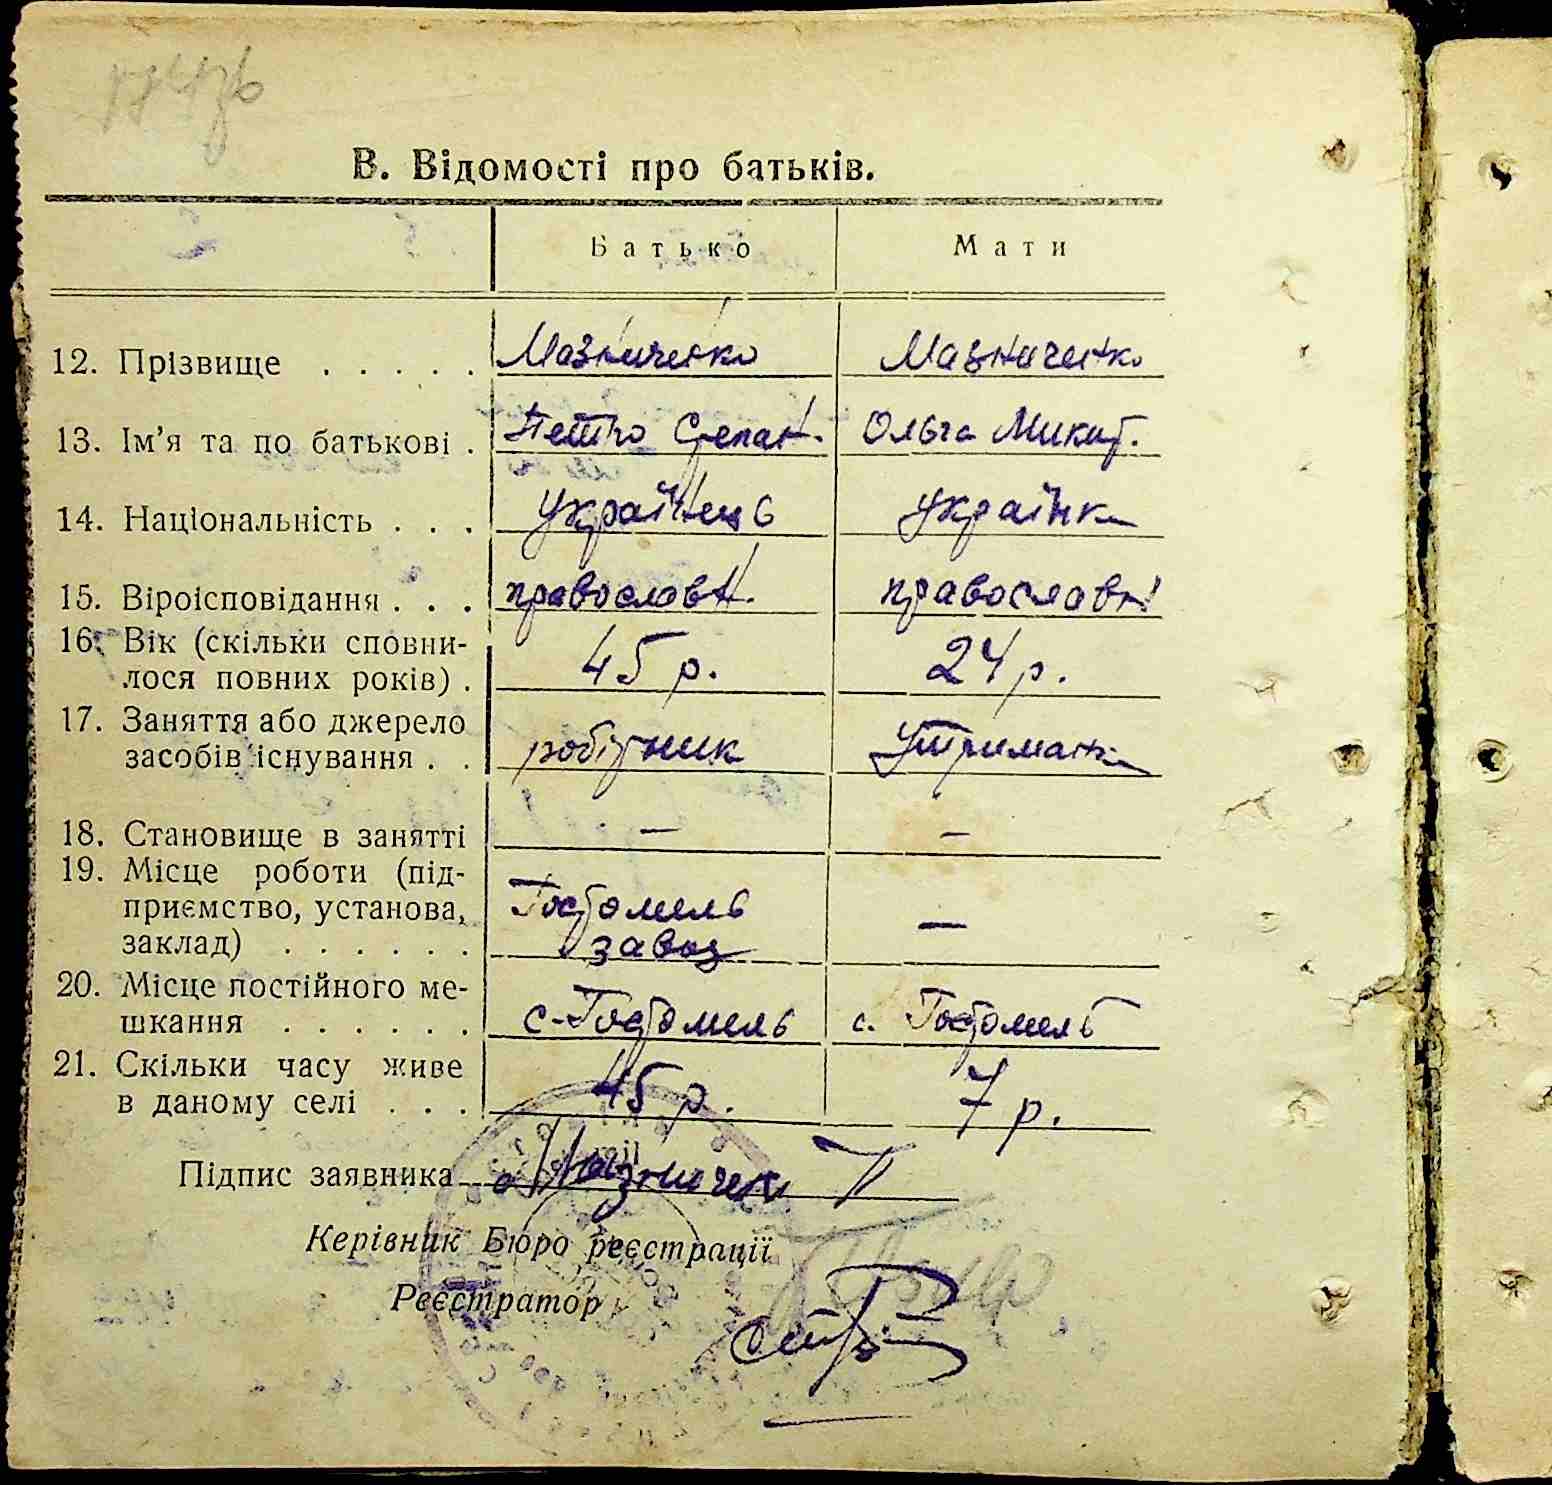 В. Відомості про батьків.
Батько Мати
12. Прізвище . . . . . Мазниченко Мазниченко
13. Ім’я та по батькові . Петро Степан. Ольга Микит.
14. Національність . . . Українець Українка
15. Віроісповідання . . . православн. православн
16. Вік (скільки сповни-
лося повних років) . 45 р. 24 р.
17. Заняття або джерело
засобів існування . . робітник Утриманка
18. Становище в занятті — —
19. Місце роботи (під-
приємство, установа, Гостомель —
заклад) . . . . . . завод
20. Місце постійного ме-
шкання . . . . . . с-Гостомель с. Гостомель
21. Скільки часу живе
в даному селі . . . 45 р. 7 р.
Підпис заявника Мазниченк П
Керівник Бюро реєстрації
Реєстратор